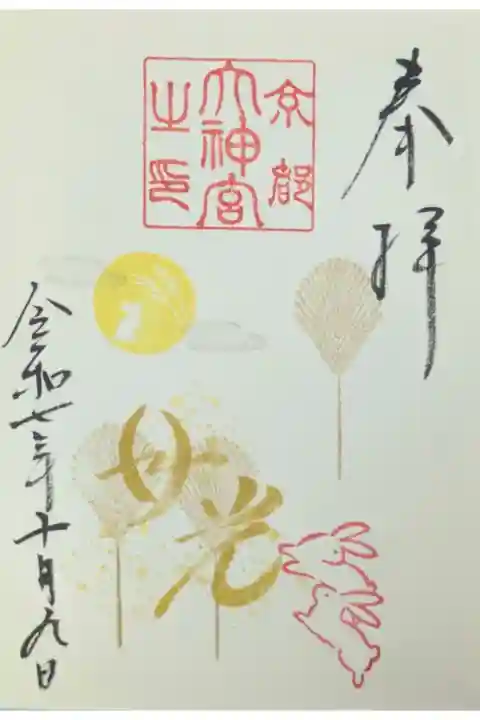 奉拝
京都
大神宮
之印
月光
令和七年十月九日